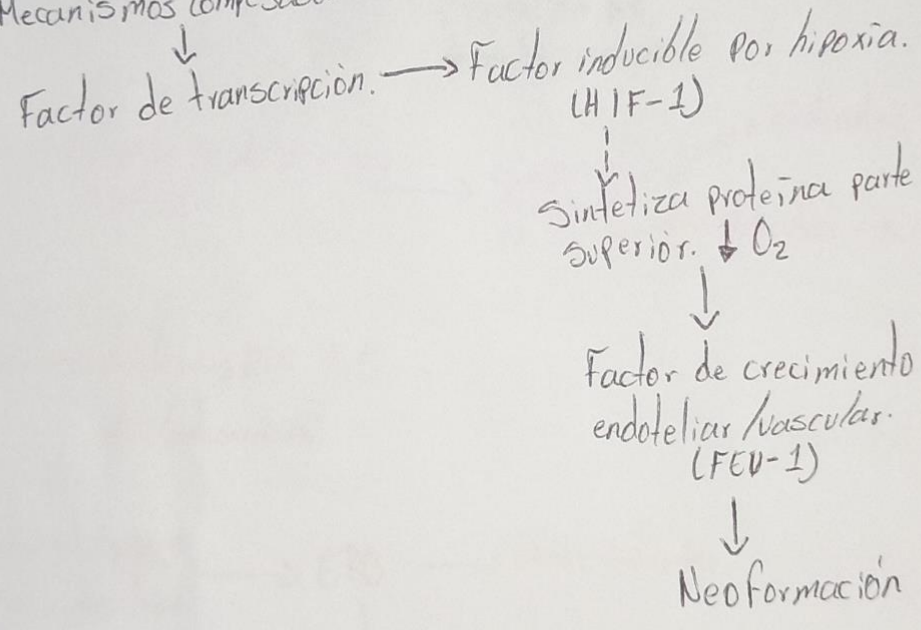 Mecanismos
↓
Factor de transcripción. → Factor inducible por hipoxia.
(HIF-1)
↓
Sintetiza proteína parte
superior. ↓ O₂
↓
Factor de crecimiento
endoteliar/vascular.
(FEV-1)
↓
Neoformación